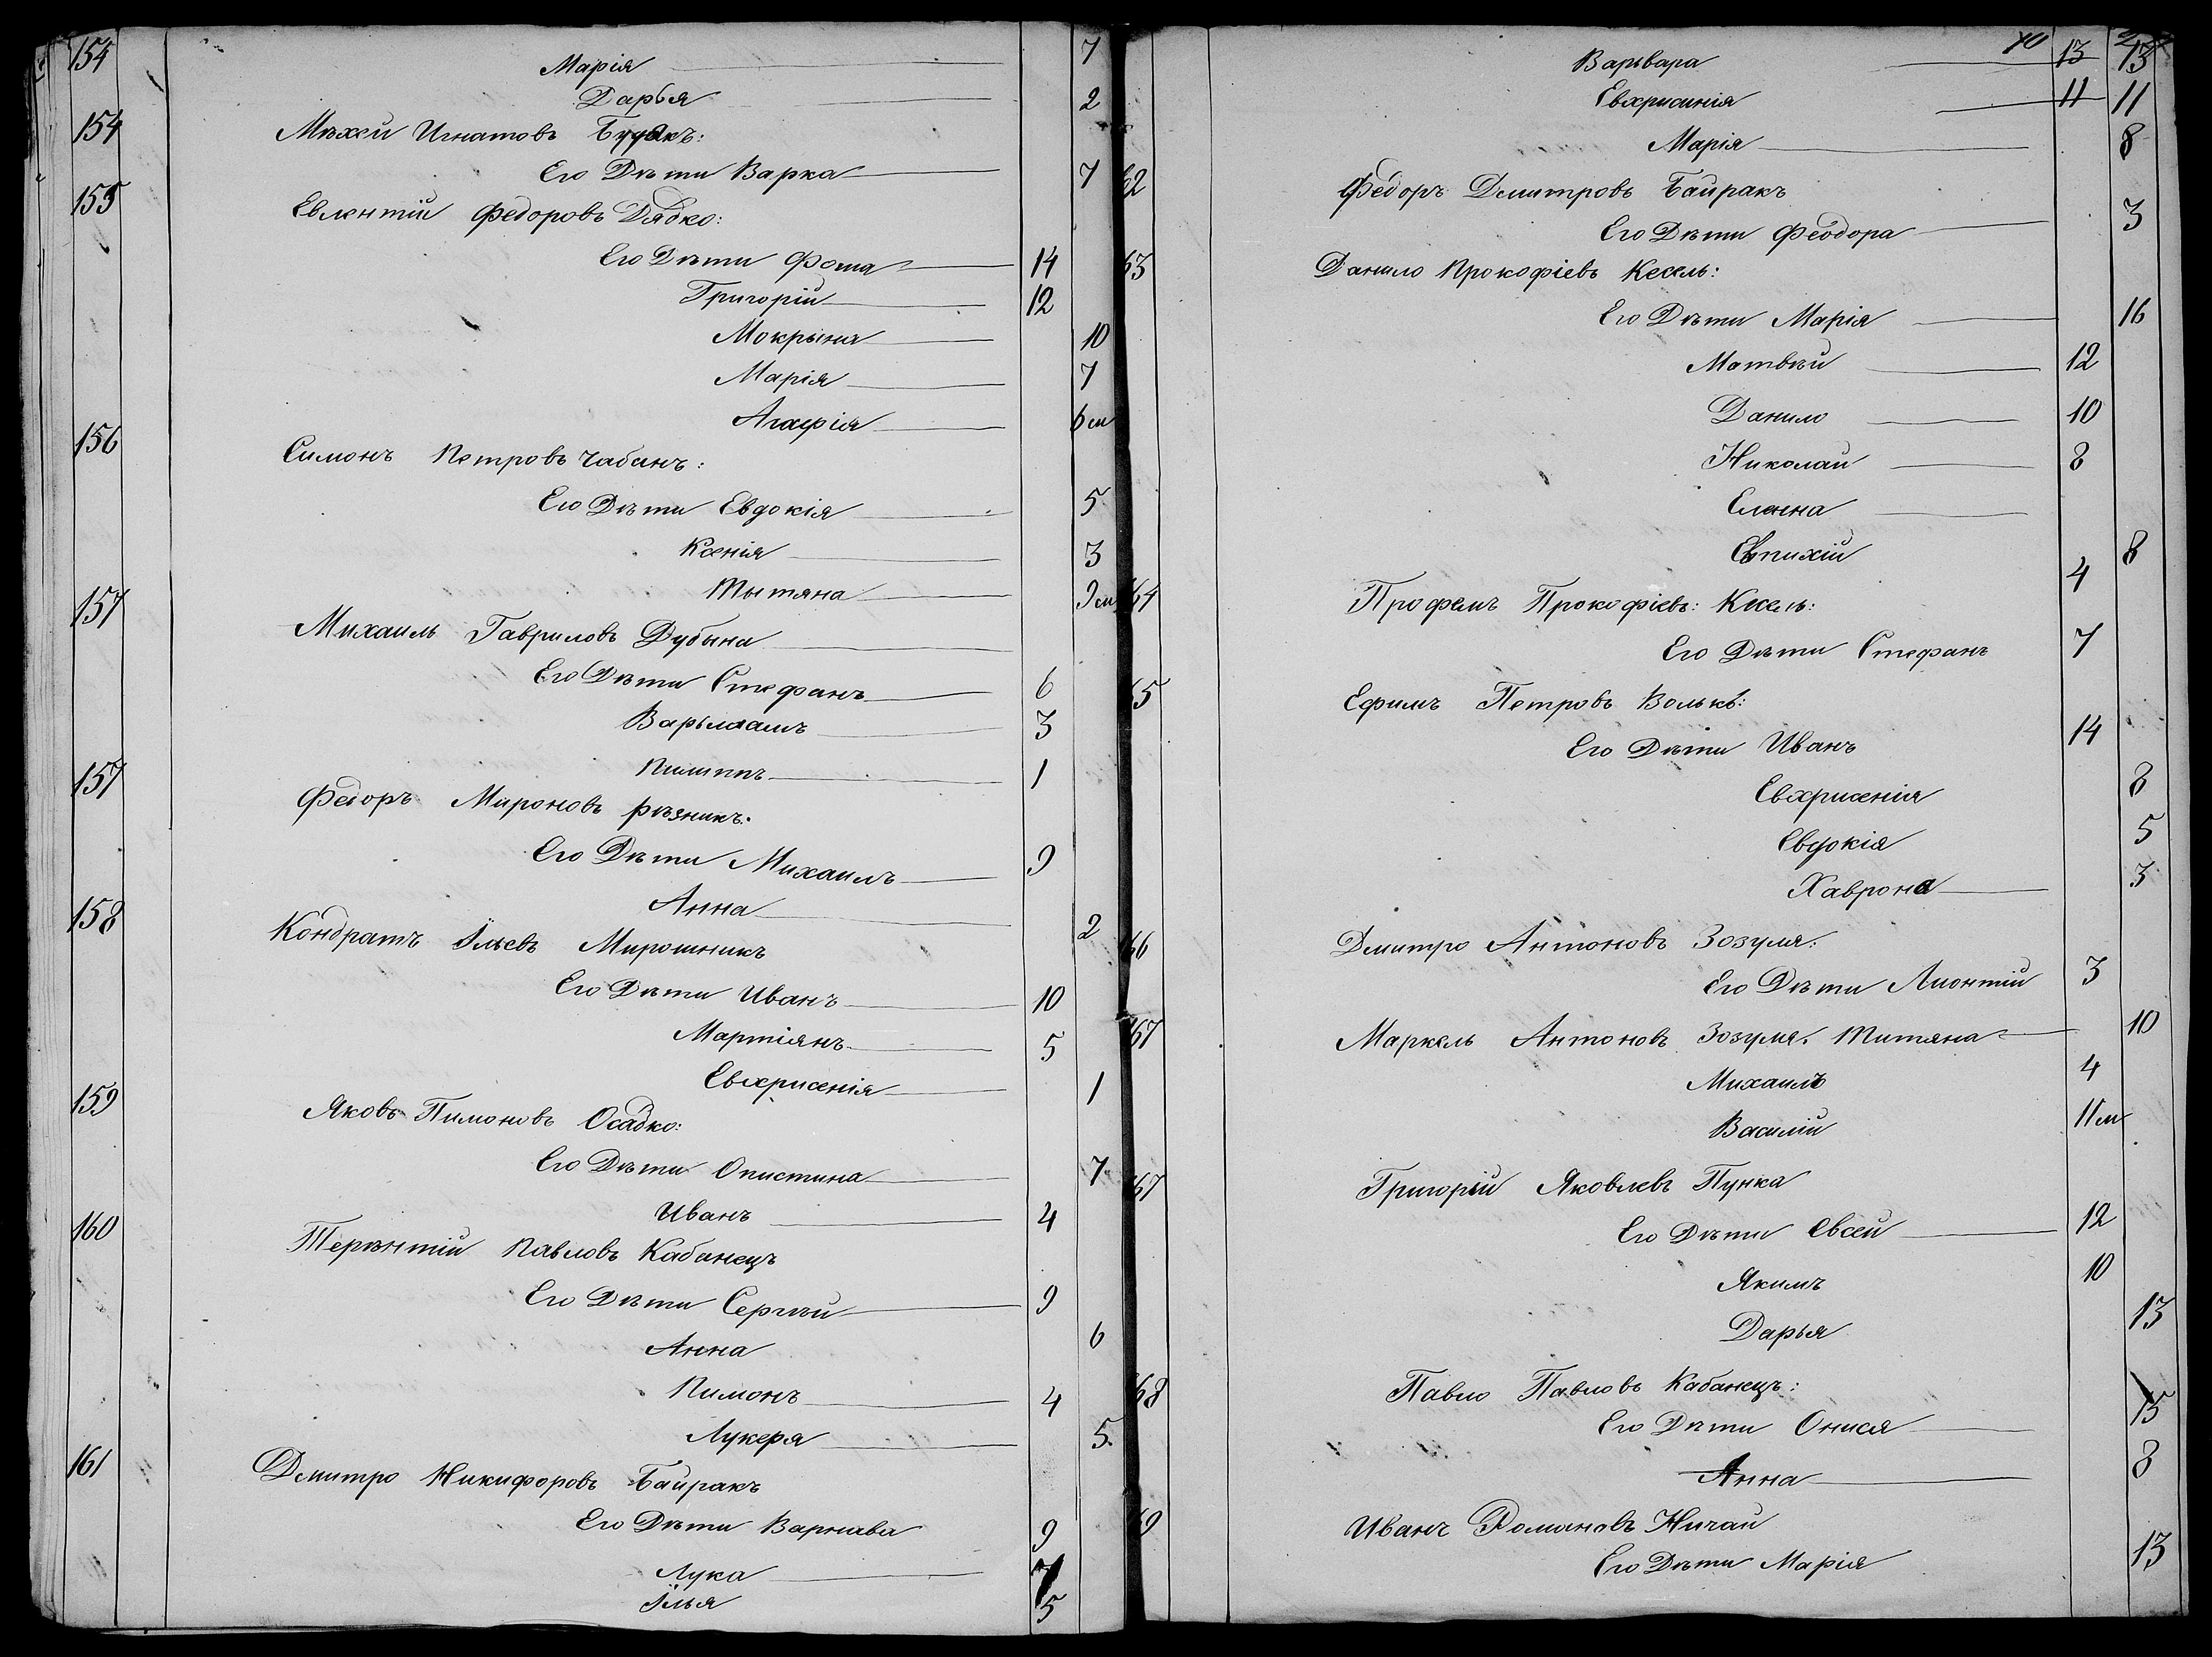 154 Марія 7
Дарья 2
154 Мѣхей Игнатовъ Будякъ:
Его Дѣти Варка 7
155 Евлентій Федоровъ Дядко:
Его Дѣти Фома 14
Григорій 12
Мокрына 10
Марія 7
Агафія 6 м
156 Симонъ Петровъ Чабанъ:
Его Дѣти Евдокія 5
Ксенія 3
Тытяна 9 м
157 Михаилъ Гавриловъ Дубына
Его Дѣти Стефанъ 6
Варылаамъ 3
Пилиппъ 1
157 Федоръ Мироновъ рѣзникъ:
Его Дѣти Михаилъ 9
Анна 2
158 Кондратъ Ільевъ Мирошникъ
Его Дѣти Иванъ 10
Мартіянъ 5
Евхрисенія 1
159 Яковъ Пимоновъ Осадко:
Его Дѣти Опистина 7
Иванъ 4
160 Терѣнтій Павловъ Кабанецъ
Его Дѣти Сергѣй 9
Анна 6
Пимонъ 4
Лукеря 5
161 Дмитро Никифоровъ Байракъ
Его Дѣти Варнава 9
Лука 7
Ілья 5
70
Варьвара 13 13
Евхрисинія 11 11
Марія 8
62 Федоръ Дмитровъ Байракъ
Его Дѣти Феодора 3
63 Данило Прокофіевъ Кесель:
Его Дѣти Марія 16
Матвѣй 12
Данило 10
Николай 8
Еленна 8
Евпихій 4
64 Профемъ Прокофіевъ: Кесель:
Его Дѣти Стефанъ 7
65 Ефимъ Петровъ Волькъ:
Его Дѣти Иванъ 14
Евхрисенія 8
Евдокія 5
Хаврона 3
66 Дмитро Антоновъ Зозуля:
Его Дѣти Лионтій 3
67 Маркель Антоновъ Зозуля. Титяна 10
Михаилъ 4
Василій 11 м
67 Григорій Яковлевъ Пунка
Его Дѣти Евсей 12
Якимъ 10
Дарья 13
68 Павло Павловъ Кабанецъ:
Его Дѣти Онися 15
Анна 8
69 Иванъ Романовъ Ничай
Его Дѣти Марія 13